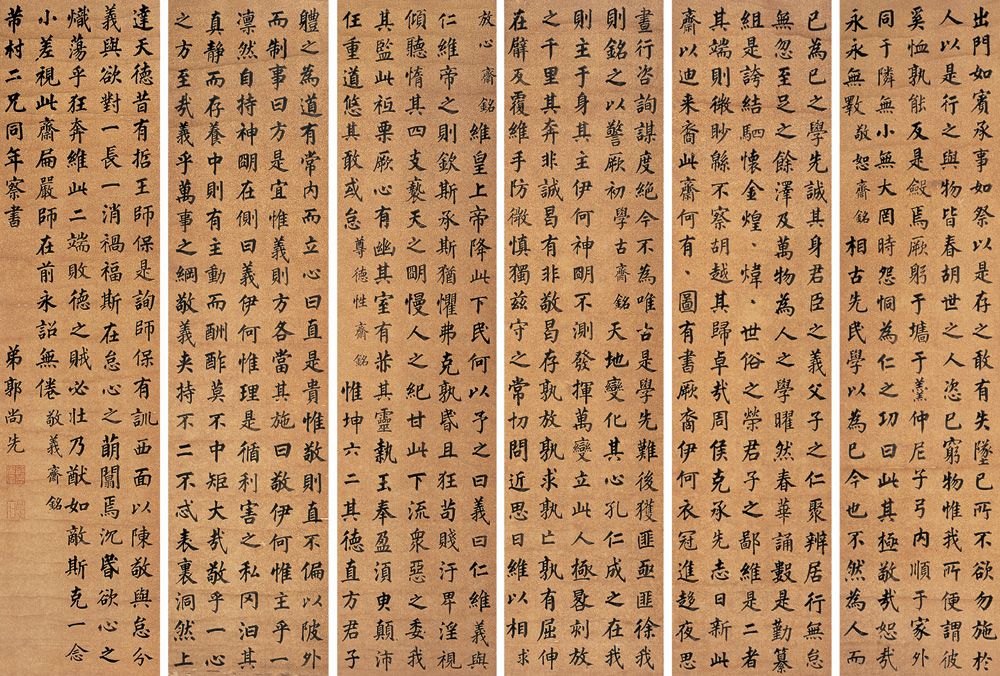 出門如賓承事如祭以是存之敢有失墜己所不欲勿施於
人以是行之與物皆春胡世之人恣己窮物惟我所便謂彼
奚恤孰能反是斂焉厥躬于墻于羹仲尼子弓內順于家外
同于隣無小無大罔時怨恫為仁之功曰此其極敬哉恕哉
永永無斁 敬恕齋銘 相古先民學以為己今也不然為人而
已為己之學先誠其身君臣之義父子之仁聚辨居行無怠
無忽至足之餘澤及萬物為人之學曜然春華誦數是勤纂
組是誇結駟懷金煌、煒、世俗之榮君子之鄙維是二者
其端則微眇緜不察胡越其歸卓哉周侯克承先志日新此
齋以迪来裔此齋何有、圖有書厥裔伊何衣冠進趨夜思
晝行咨詢謀度絕今不為唯古是學先難後獲匪亟匪徐我
則銘之以警厥初 學古齋銘 天地變化其心孔仁成之在我
則主于身其主伊何神明不測發揮萬變立此人極晷刻放
之千里其奔非誠曷有非敬曷存孰放孰求孰亡孰有屈伸
在臂反覆維手防微慎獨茲守之常切問近思曰維以相求
放心齋銘 維皇上帝降此下民何以予之曰義曰仁維義與
仁維帝之則欽斯承斯猶懼弗克孰昏且狂苟賤汙卑淫視
傾聽惰其四支褻天之明慢人之紀甘此下流眾惡之委我
其監此祗栗厥心有幽其室有赤其靈執玉奉盈須臾顛沛
任重道悠其敢或怠 尊德性齋銘 惟坤六二其德直方君子
體之為道有常內而立心曰直是貴惟敬則直不偏以陂外
而制事曰方是宜惟義則方各當其施曰敬伊何惟主乎一
凛然自持神明在側曰義伊何惟理是循利害之私罔汩其
真靜而存養中則有主動而酬酢莫不中矩大哉敬乎一心
之方至哉義乎萬事之綱敬義夹持不二不忒表裏洞然上
達天德昔有哲王師保是詢師保有訓西面以陳敬與怠分
義與欲對一長一消禍福斯在怠心之萌闒焉沉昬欲心之
熾蕩乎狂奔維此二端敗德之賊必壯乃猷如敵斯克一念
小差視此齋扁嚴師在前永詔無倦 敬義齋銘
芾村二兄同年察書 弟郭尚先